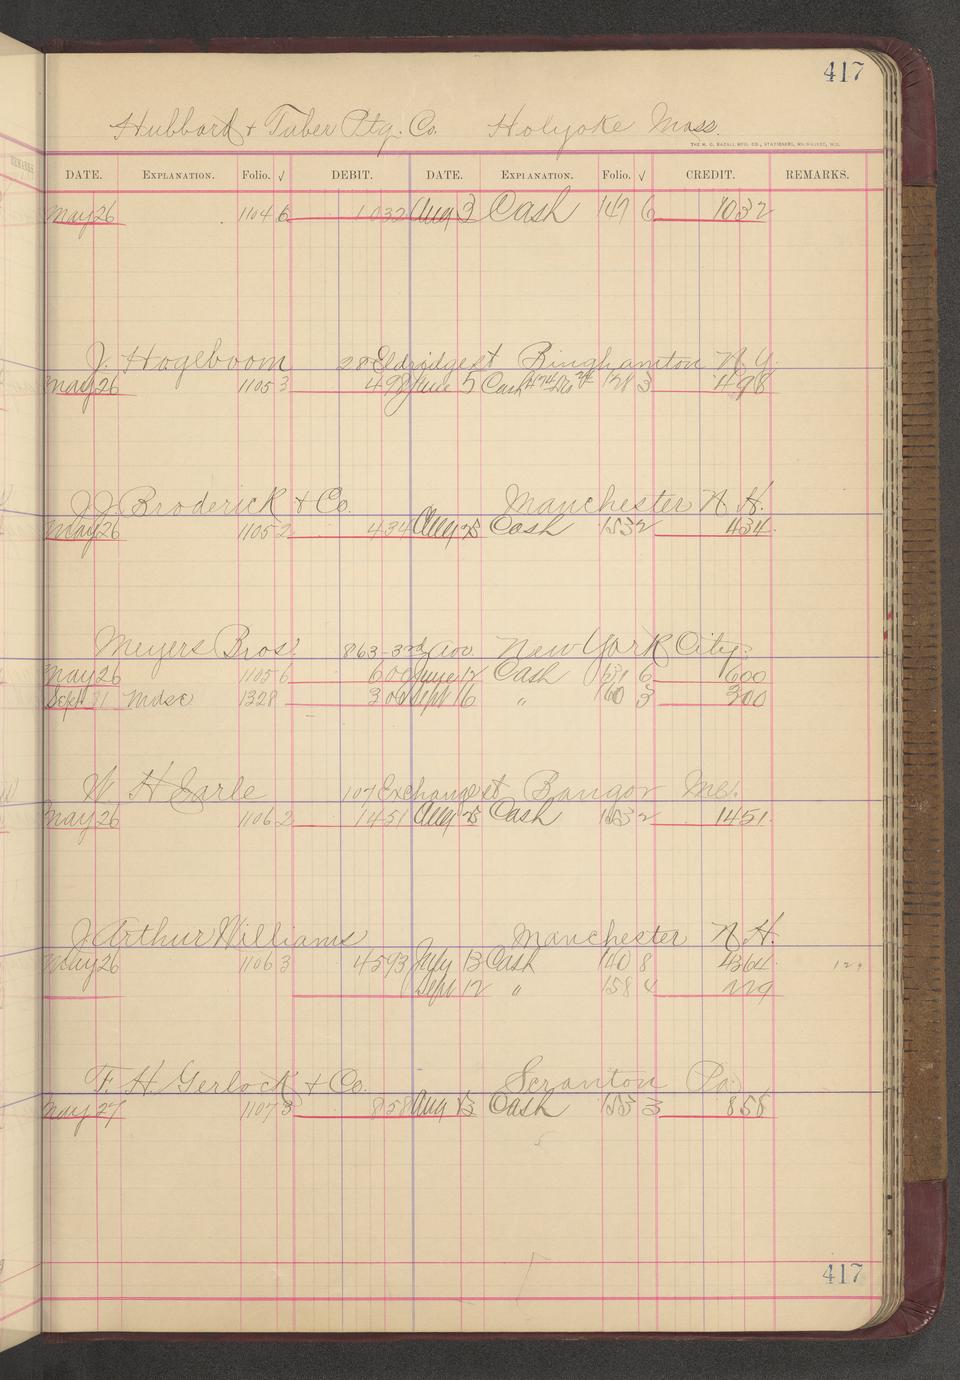 417
Hubbard & Taber Ptg. Co. Holyoke Mass.
THE H. G. RAZALL MFG. CO., STATIONERS, MILWAUKEE, WIS.
DATE. EXPLANATION. Folio. √ DEBIT. DATE. EXPLANATION. Folio. √ CREDIT. REMARKS.
May 26 1104 6 1032 Aug 3 Cash 147 6 1032
J. Hogeboom 28 Eldridge st Binghamton N.Y.
May 26 1105 3 498 June 5 Cash 128 3 498
J.J. Broderick & Co. Manchester N.H.
May 26 1105 2 434 Aug 25 Cash 153 2 434
Meyers Bros. 863-3rd Ave. New York City.
May 26 1105 6 600 June 12 Cash 131 6 600
Sept 11 Mdse 1328 300 Sept 16 " 160 3 300
W. H Earle 107 Exchange st Bangor Me.
May 26 1106 2 1451 Aug 25 Cash 153 2 1451
J. Arthur Williams Manchester N.H.
May 26 1106 3 4593 July 13 Cash 140 8 4364
Sept 12 " 158 4 229
F. H. Gerlock & Co. Scranton Pa.
May 27 1107 3 858 Aug 25 Cash 153 3 858
417